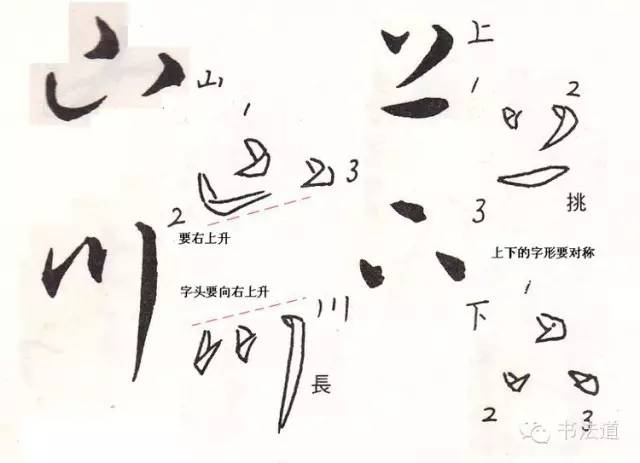 山
山
1
2
3
要右上升
川
字头要向右上升
川
長
上
上
1
2
3
挑
上下的字形要对称
下
下
1
2
3
书法道